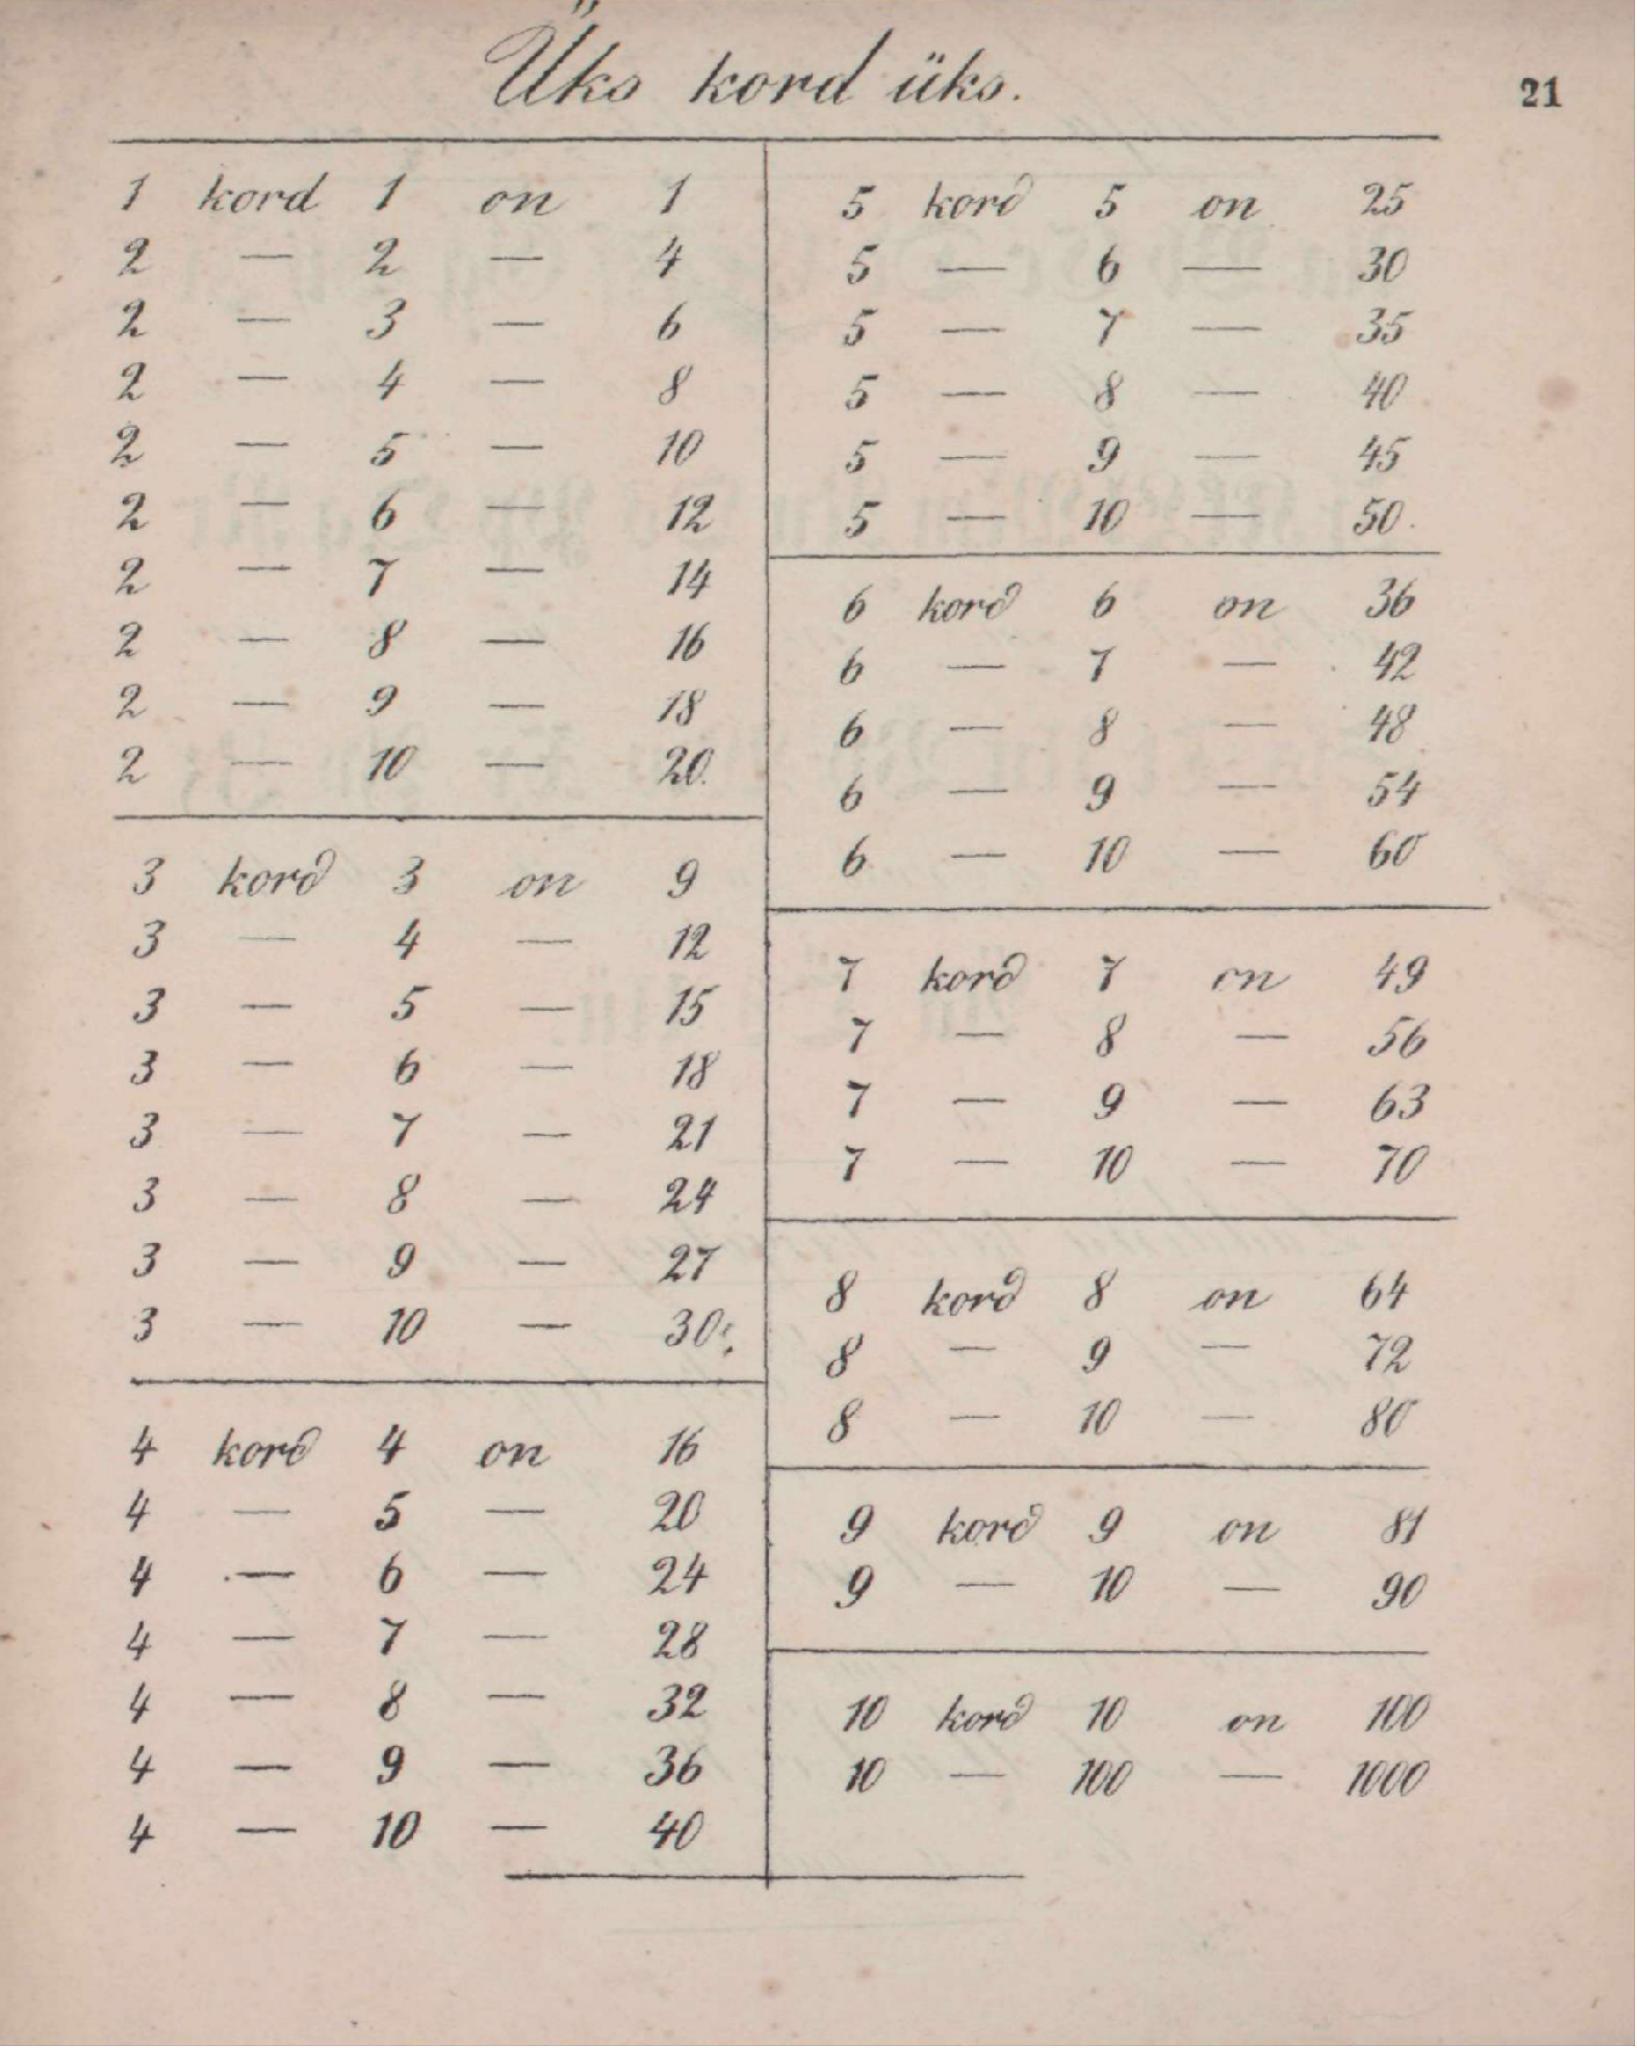 Üks kord üks.
21
1 kord 1 on 1
2 — 2 — 4
2 — 3 — 6
2 — 4 — 8
2 — 5 — 10
2 — 6 — 12
2 — 7 — 14
2 — 8 — 16
2 — 9 — 18
2 — 10 — 20.
3 kord 3 on 9
3 — 4 — 12
3 — 5 — 15
3 — 6 — 18
3 — 7 — 21
3 — 8 — 24
3 — 9 — 27
3 — 10 — 30.
4 kord 4 on 16
4 — 5 — 20
4 — 6 — 24
4 — 7 — 28
4 — 8 — 32
4 — 9 — 36
4 — 10 — 40
5 kord 5 on 25
5 — 6 — 30
5 — 7 — 35
5 — 8 — 40
5 — 9 — 45
5 — 10 — 50.
6 kord 6 on 36
6 — 7 — 42
6 — 8 — 48
6 — 9 — 54
6 — 10 — 60
7 kord 7 on 49
7 — 8 — 56
7 — 9 — 63
7 — 10 — 70
8 kord 8 on 64
8 — 9 — 72
8 — 10 — 80
9 kord 9 on 81
9 — 10 — 90
10 kord 10 on 100
10 — 100 — 1000